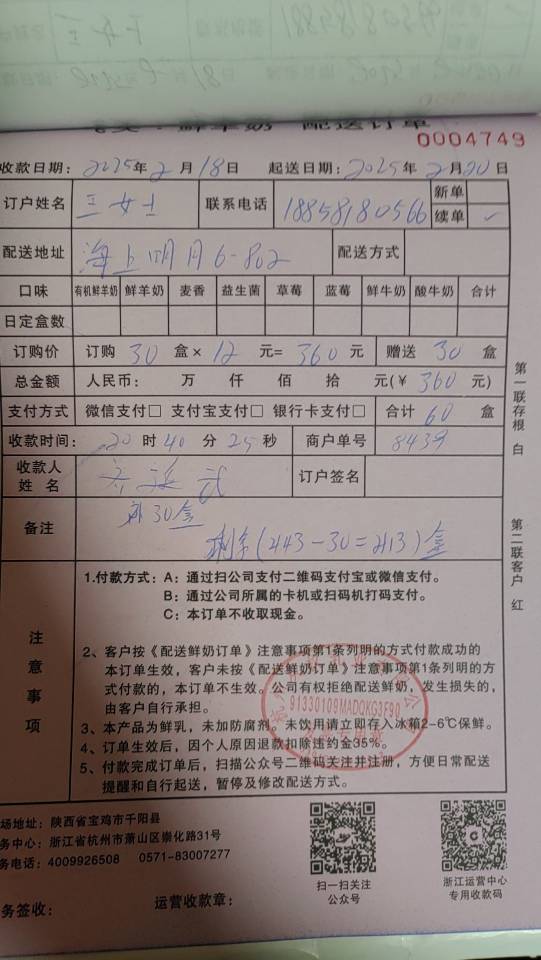 鲜羊奶 配送订单
0004749
收款日期: 2025年2月18日 起送日期: 2025年2月20日
订户姓名 王女士 联系电话 18858180566 新单
续单 ✓
配送地址 海上明月6-802 配送方式
口味 有机鲜羊奶 鲜羊奶 麦香 益生菌 草莓 蓝莓 鲜牛奶 酸牛奶 合计
日定盒数
订购价 订购 30 盒× 12 元= 360 元 赠送 30 盒
总金额 人民币: 万 仟 佰 拾 元(¥ 360 元)
支付方式 微信支付□ 支付宝支付□ 银行卡支付□ 合计 60 盒
收款时间: 20 时 40 分 25 秒 商户单号 8439
收款人
姓 名 订户签名
备注 补30盒
剩余(243-30=213)盒
第一联存根 白
第二联客户 红
注意事项
1.付款方式: A: 通过扫公司支付二维码支付宝或微信支付。
B: 通过公司所属的卡机或扫码机打码支付。
C: 本订单不收取现金。
2、客户按《配送鲜奶订单》注意事项第1条列明的方式付款成功的
本订单生效，客户未按《配送鲜奶订单》注意事项第1条列明的方
式付款的，本订单不生效。公司有权拒绝配送鲜奶，发生损失的，
由客户自行承担。
3、本产品为鲜乳，未加防腐剂。未饮用请立即存入冰箱2-6℃保鲜。
4、订单生效后，因个人原因退款扣除违约金35%。
5、付款完成订单后，扫描公众号二维码关注并注册，方便日常配送
提醒和自行起送，暂停及修改配送方式。
91330109MADQKG3F90
场地址: 陕西省宝鸡市千阳县
务中心: 浙江省杭州市萧山区崇化路31号
务电话: 4009926508 0571-83007277
扫一扫关注
公众号
浙江运营中心
专用收款码
务签收: 运营收款章: